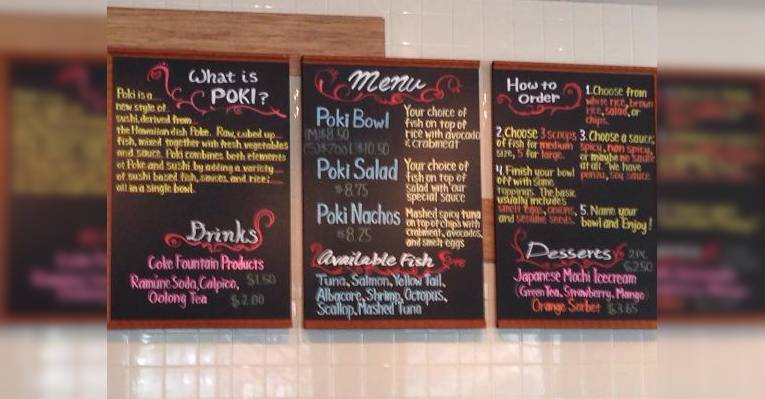 What is
POKI?
Poki is a
new style of
sushi, derived from
the Hawaiian dish Poke. Raw, cubed up
fish, mixed together with fresh vegetables
and sauce. Poki combines both elements
of Poke and Sushi by adding a variety
of sushi based fish, sauces, and rice;
all in a single bowl.
Drinks
Coke Fountain Products
$1.50
Ramune Soda, Calpico,
Oolong Tea
$2.00
Menu
Poki Bowl
(M)$8.50
(L)$10.50
Your choice of
fish on top of
rice with avocado
& crabmeat
Poki Salad
$8.75
Your choice of
fish on top of
salad with our
special sauce
Poki Nachos
$8.25
Mashed spicy tuna
on top of chips with
crabmeat, avocados,
and smelt eggs
Available Fish
Tuna, Salmon, Yellow Tail,
Albacore, Shrimp, Octopus,
Scallop, Mashed Tuna
How to
Order
1. Choose from
white rice, brown
rice, salad, or
chips.
2. Choose 3 scoops
of fish for medium
size, 5 for large.
3. Choose a sauce,
spicy, non spicy,
or maybe no sauce
at all. We have
ponzu, soy sauce
4. Finish your bowl
off with some
toppings. The basic
usually includes
smelt eggs, onions,
and sesame seeds.
5. Name your
bowl and Enjoy!
Desserts
2 pc
$2.50
Japanese Mochi Icecream
(Green Tea, Strawberry, Mango)
Orange Sorbet $3.65